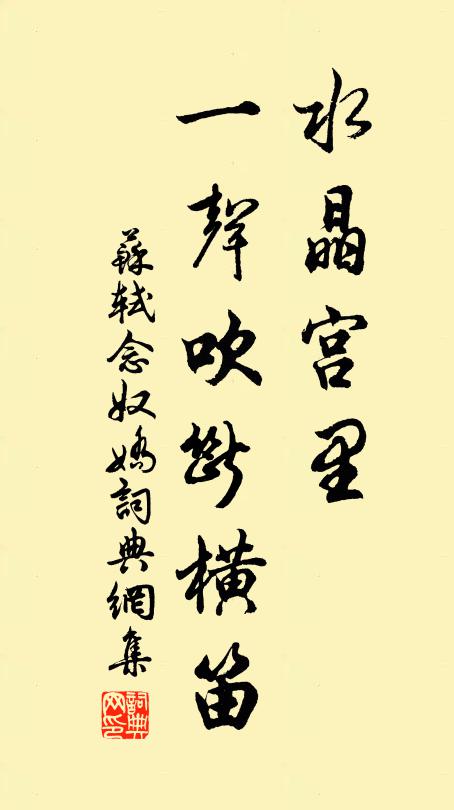 水晶宫里
一聲吹斷横笛
蘇軾念奴嬌詞典網集
詞典网印